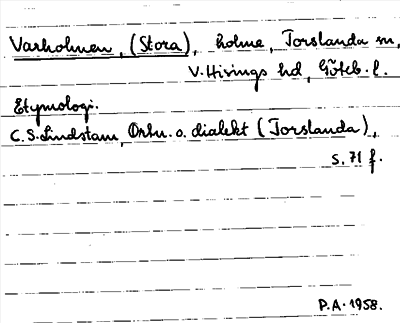 Varholmen, (Stora), holme, Torslanda sn,
V. Hisings hd, Göteb. l.
Etymologi.
C.S. Lindstam, Ortn. o. dialekt (Torslanda),
s. 71 f.
P.A. 1958.